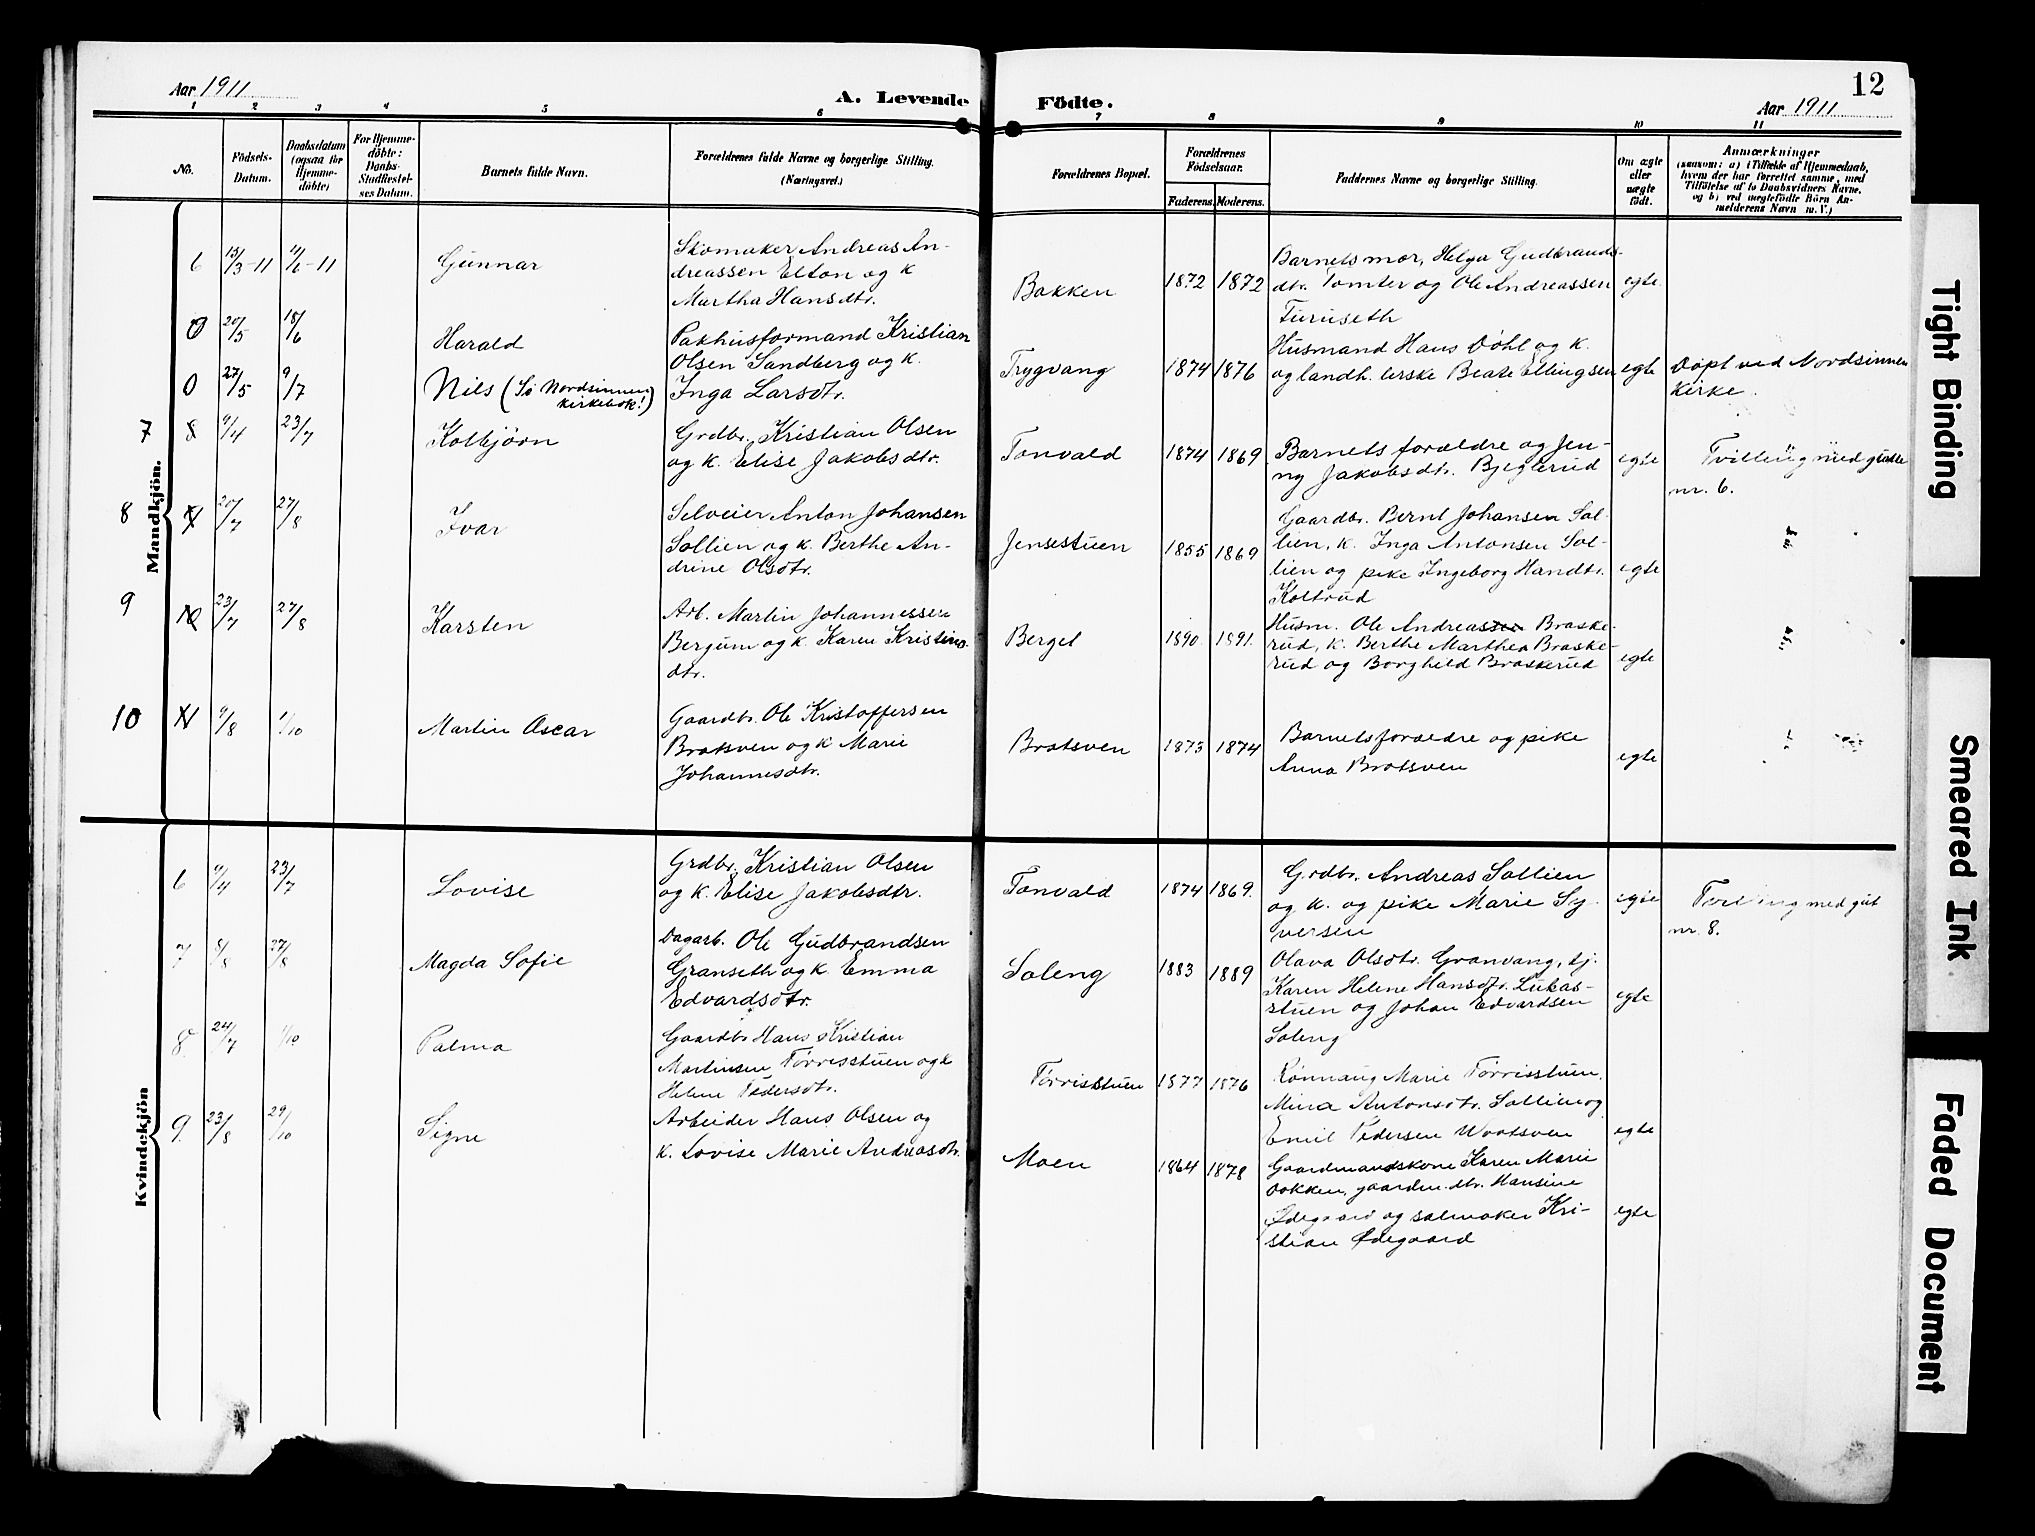 Aar 1911
A. Levende Födte.
12
Aar 1911
1 2 3 4 5 6 7 8 9 10 11
No.
Födsels-Datum.
Daabsdatum (ogsaa for Hjemme-döbte)
For Hjemme-döbte: Daabs-Stadfæstel-ses Datum.
Barnets fulde Navn.
Forældrenes fulde Navne og borgerlige Stilling. (Næringsvei.)
Forældrenes Bopæl.
Forældrenes Födselsaar.
Faderens. Moderens.
Faddernes Navne og borgerlige Stilling.
Om ægte eller uægte födt.
Anmærkninger
(saasom: a) i Tilfælde af Hjemmedaab,
hvem der har forrettet samme, med
Tilföielse af to Daabsvidners Navne.
og b) ved uægtefödte Börn An-
melderens Navn m. V.)
Mandkjön.
6 13/3-11 11/6-11 Gunnar
Skomaker Andreas An-
dreassen Elton og k
Martha Hansdtr.
Bakken 1872 1872
Barnets mor, Helga Gudbrands-
dtr. Tomter og Ole Andreassen
Turuseth
egte
0 20/5 18/6 Harald
Pakhusformand Kristian
Olsen Sandberg og k.
Inga Larsdtr.
Trygvang 1874 1876
Husmand Hans Döhl og k.
og landh. lerske Beate Ellingsen
egte
Döpt ved Nordsinnen
Kirke.
0 27/5 9/7 Nils (Se Nordsinnen
kirkebok!)
7 8 9/4 23/7 Kolbjörn
Grdbr. Kristian Olsen
og k. Elise Jakobsdtr.
Tonvald 1874 1869
Barnets forældre og Jen-
ny Jakobsdtr. Bjeglerud
egte
Tvilling med
nr. 6.
8 20/7 27/8 Ivar
Selveier Anton Johansen
Sollien og k. Berthe An-
drine Olsdtr.
Jensestuen 1855 1869
Gaardbr. Bernt Johansen Sol-
lien, k. Inga Antonsen Sol-
lien og pike Ingeborg Handtr.
Koltrud
egte
9 10 23/7 27/8 Karsten
Arb. Martin Johannessen
Bergum og k. Karen Kristians-
dtr.
Berget 1890 1891
Husm. Ole Andreassen Braske-
rud, k. Berthe Marthea Braske-
rud og Borghild Braskerud
egte
10 9/8 1/10 Martin Oscar
Gaardbr. Ole Kristoffersen
Bratsven og k Marie
Johannesdtr.
Bratsven 1873 1874
Barnets forældre og pike
Anna Bratsven
egte
Kvindekjön
6 9/4 23/7 Lovise
Grdbr. Kristian Olsen
og k. Elise Jakobsdtr.
Tonvald 1874 1869.
Grdbr. Andreas Sollien
og k. og pike Marie Sy-
versen
egte
med gut
nr. 8.
7 8/8 27/8 Magda Sofie
Dagarb. Ole Gudbrandsen
Granseth og k. Emma
Edvardsdtr.
Soleng 1883 1889
Olava Olsdtr. Granvang, tj.
Karen Helene Hansdtr. Lukas-
stuen og Johan Edvardsen
Soleng
egte
8. 24/7 1/10 Palma
Gaardbr Hans Kristian
Martinsen Törrisstuen og k
Helene Pedersdtr.
Törrisstuen 1877 1876
Rönnaug Marie Törrisstuen.
Mina Antonsdtr. Sollien og
Emil Pedersen Wootsven
egte
9. 23/8 29/10 Signe
Arbeider Hans Olsen og
k. Lovise Marie Andreasdtr.
Moen 1864 1878
Gaardmandskone Karen Marie
Bakken, gaardm.dtr. Hansine
Ødegaard og salmaker Kri-
stian Ødegaard
egte
Tight Binding
Smeared Ink
Faded Document